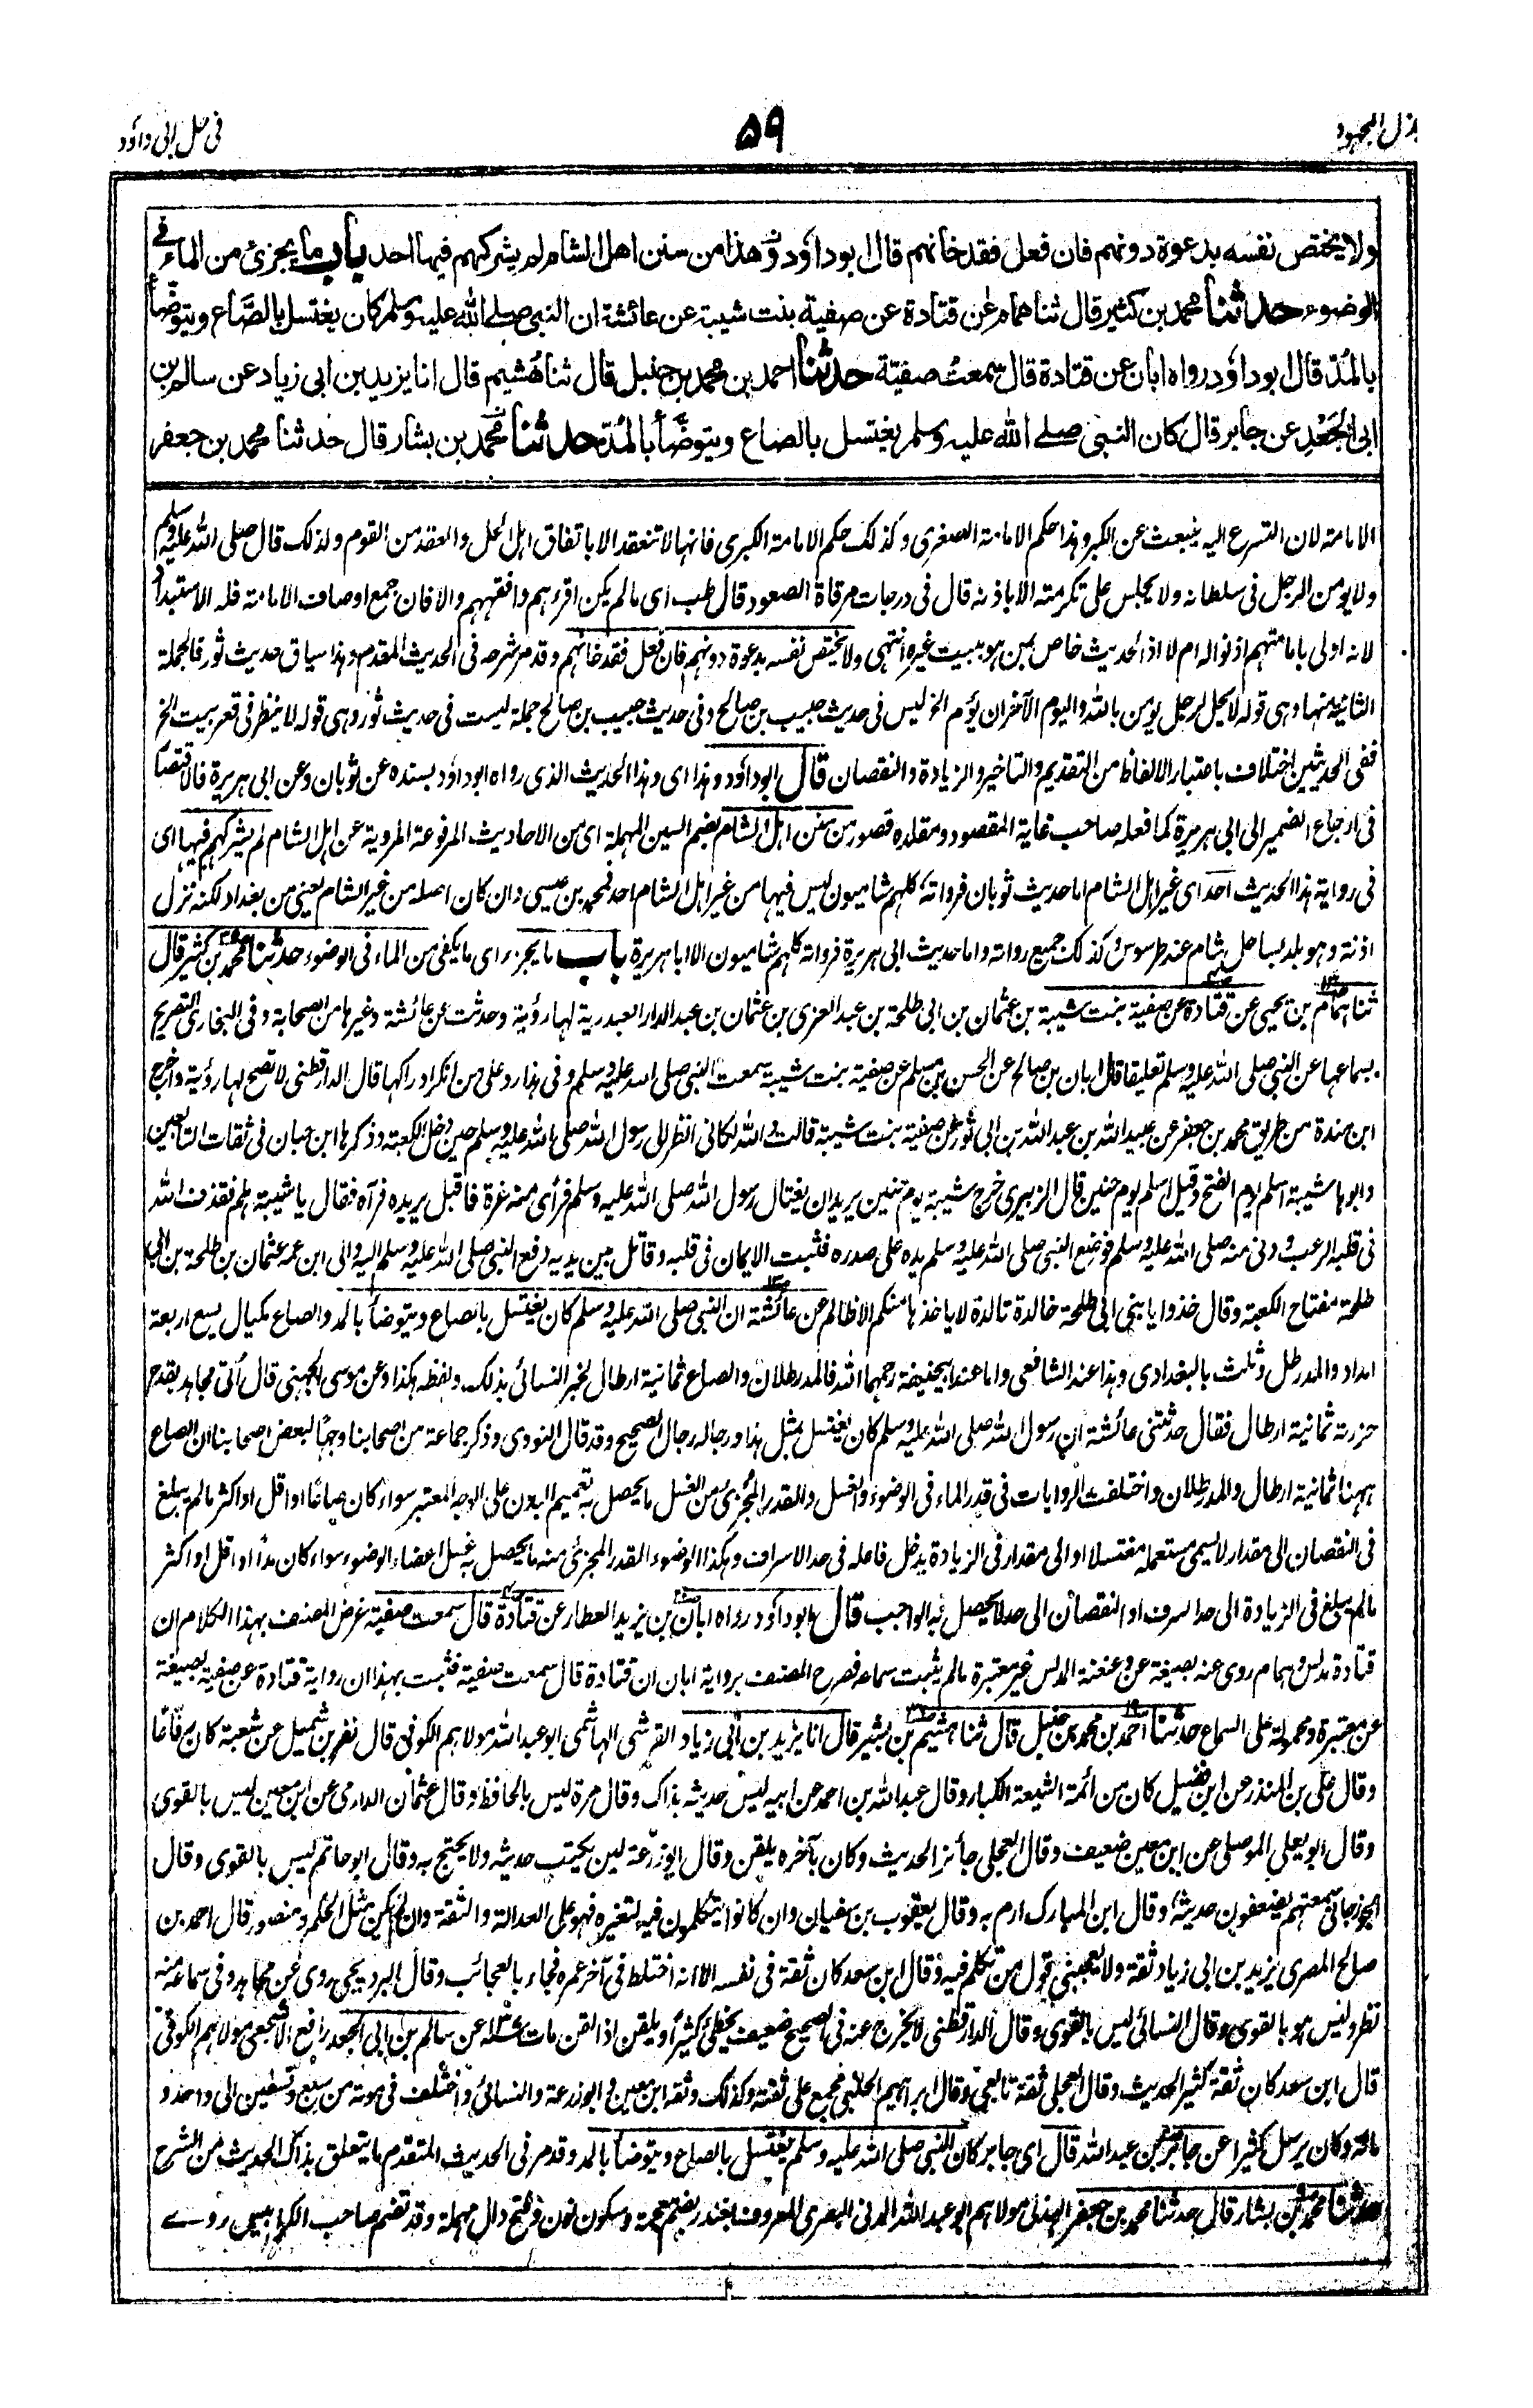 بذل المجهود
۵۹
فی حل ابی داؤد
ولا يختص نفسه بدعوة دونهم فان فعل فقد خانهم قال ابوداؤد وهذا من سنن اهل الشام لم يشركهم فيها احد باب ما يجزئ من الماء في
الوضوء حدثنا محمد بن كثير قال ثنا همام عن قتادة عن صفية بنت شيبة عن عائشة ان النبي صلے الله عليه وسلم كان يغتسل بالصاع ويتوضأ
بالمُدّ قال ابوداؤد رواه ابان عن قتادة قال سمعت صفية حدثنا احمد بن محمد بن حنبل قال ثنا هُشيم قال انا يزيد بن ابى زياد عن سالم بن
ابى الجَعْدِ عن جابر قال كان النبى صلے الله عليه وسلم يغتسل بالصاع ويتوضَّأ بالمُدّ حدثنا محمد بن بشار قال حدثنا محمد بن جعفر
الامامة لان التسرع اليه ينبعث عن الكبر وهذا حكم الامامة الصغرى وكذلك حكم الامامة الكبرى فانها لا تنعقد الا باتفاق اهل الحل والعقد من القوم ولذلك قال صلى الله عليه وسلم
ولا يومن الرجل فى سلطانه ولا يجلس على تكرمته الا باذنه قال فى درجات مرقاة الصعود قال طب اى ما لم يكن اقرءهم وافقههم والا فان جمع اوصاف الامامة فله الاستبداد
لانه اولى بامامتهم اذنوا له ام لا اذ الحديث خاص بمن هو ببيت غيره انتهى ولا يختص نفسه بدعوة دونهم فان فعل فقد خانهم وقد مر شرحه فى الحديث المقدم وهذا سياق حديث ثور فالجملة
الثانية منها وهى قوله لا يحل لرجل يومن بالله واليوم الآخر ان يؤم الخ ليس فى حديث حبيب بن صالح وفى حديث حبيب بن صالح جملة ليست فى حديث ثور وهى قوله لا ينظر فى قعر بيت الخ
ففى الحديثين اختلاف باعتبار الالفاظ من التقديم والتاخير والزيادة والنقصان قال ابوداؤد وهذا اى وهذا الحديث الذى رواه ابوداؤد بسنده عن ثوبان وعن ابى هريرة فالاقتصار
فى ارجاع الضمير الى ابى هريرة كما فعله صاحب غاية المقصود ومقلده قصور من سنن اهل الشام بضم السين المهملة اى من الاحاديث المرفوعة المروية عن اهل الشام لم يشركهم فيها اى
فى رواية هذا الحديث احد اى غير اهل الشام اما حديث ثوبان فرواته كلهم شاميون ليس فيها من غير اهل الشام احد فمحمد بن عيسى وان كان اصله من غير الشام يعنى من بغداد لكنه نزل
اذنة وهو بلد بساحل شام عند طرسوس وكذلك جميع رواته واما حديث ابى هريرة فرواته كلهم شاميون الا ابا هريرة باب ما يجزء اى ما يكفى من الماء فى الوضوء حدثنا محمد بن كثير قال
ثنا همام بن يحيى عن قتادة عن صفية بنت شيبة بن عثمان بن ابى طلحة بن عبد العزى بن عثمان بن عبد الدار العبدرية لها رؤية وحدثت عن عائشة وغيرها من الصحابة وفى البخارى التصريح
بسماعها عن النبى صلى الله عليه وسلم تعليقا قال ابان بن صالح عن الحسن بن مسلم عن صفية بنت شيبة سمعت النبى صلى الله عليه وسلم وفى هذا رد على من انكر ادراكها قال الدارقطنى لا تصح لها رؤية واخرج
ابن مندة من طريق محمد بن جعفر عن عبيد الله بن عبد الله بن ابى ثور عن صفية بنت شيبة قالت والله لكانى انظر الى رسول الله صلى الله عليه وسلم حين دخل الكعبة وذكرها ابن حبان فى ثقات التابعين
وابوها شيبة اسلم يوم الفتح وقيل اسلم يوم حنين قال الزبيرى خرج شيبة يوم حنين يريد ان يغتال رسول الله صلى الله عليه وسلم فرأى منه غرة فاقبل يريده فرآه فقال يا شيبة هلم فقذف الله
فى قلبه الرعب ودنى منه صلى الله عليه وسلم فوضع النبى صلى الله عليه وسلم يده على صدره فثبت الايمان فى قلبه وقاتل بين يديه ودفع النبى صلى الله عليه وسلم اليه والى ابن عمه عثمان بن طلحة بن ابى
طلحة مفتاح الكعبة وقال خذوا يا بنى ابى طلحة خالدة تالدة لا ياخذها منكم الا ظالم عن عائشة ان النبى صلى الله عليه وسلم كان يغتسل بالصاع ويتوضأ بالمد والصاع مكيال يسع اربعة
امداد والمد رطل وثلث بالبغدادى وهذا عند الشافعى واما عند ابيحنيفة رحمهما الله فالمد رطلان والصاع ثمانية ارطال لخبر النسائى بذلك ولفظه هكذا وعن موسى الجهنى قال اتى مجاهد بقدح
حزرته ثمانية ارطال فقال حدثتنى عائشة ان رسول الله صلى الله عليه وسلم كان يغتسل بمثل هذا ورجاله رجال الصحيح وقد قال النووى وذكر جماعة من اصحابنا وجها لبعض اصحابنا ان الصاع
ههنا ثمانية ارطال والمد رطلان واختلفت الروايات فى قدر الماء فى الوضوء والغسل والقدر المجزئ من الغسل ما يحصل به تعميم البدن على الوجه المعتبر سواء كان صاعا او اقل او اكثر ما لم يبلغ
فى النقصان الى مقدار لا يسمى مستعمله مغتسلا او الى مقدار فى الزيادة يدخل فاعله فى حد الاسراف وهكذا الوضوء القدر المجزئ منه ما يحصل به غسل اعضاء الوضوء سواء كان مدا او اقل او اكثر
ما لم يبلغ فى الزيادة الى حد السرف او النقصان الى حد لا يحصل به الواجب قال ابوداؤد رواه ابان بن يزيد العطار عن قتادة قال سمعت صفية غرض المصنف بهذا الكلام ان
قتادة مدلس وهمام روى عنه بصيغة عن وعنعنة المدلس غير معتبرة ما لم يثبت سماعه فصرح المصنف برواية ابان ان قتادة قال سمعت صفية فثبت بهذا ان رواية قتادة عن صفية بصيغة
عن معتبرة ومحمولة على السماع حدثنا احمد بن محمد بن حنبل قال ثنا هشيم بن بشير قال انا يزيد بن ابى زياد القرشى الهاشمى ابو عبد الله مولاهم الكوفى قال نضر بن شميل عن شعبة كان رفاعا
وقال على بن المنذر عن ابن فضيل كان من ائمة الشيعة الكبار وقال عبد الله بن احمد عن ابيه ليس حديثه بذاك وقال مرة ليس بالحافظ وقال عثمان الدارمى عن ابن معين ليس بالقوى
وقال ابو يعلى الموصلى عن ابن معين ضعيف وقال العجلى جائز الحديث وكان بآخره يلقن وقال ابو زرعة لين يكتب حديثه ولا يحتج به وقال ابو حاتم ليس بالقوى وقال
الجوزجانى سمعتهم يضعفون حديثه وقال ابن المبارك ارم به وقال يعقوب بن سفيان وان كانوا يتكلمون فيه لتغيره فهو على العدالة والثقة وان لم يكن مثل الحكم ومنصور قال احمد بن
صالح المصرى يزيد بن ابى زياد ثقة ولا يعجبنى قول من تكلم فيه وقال ابن سعد كان ثقة فى نفسه الا انه اختلط فى آخر عمره فجاء بالعجائب وقال البرديجى روى عن مجاهد وفى سماعه منه
نظر وليس هو بالقوى وقال النسائى ليس بالقوى وقال الدارقطنى لا يخرج عنه فى الصحيح ضعيف يخطئ كثيرا ويلقن اذا لقن مات عن سالم بن ابى الجعد رافع الاشجعى مولاهم الكوفى
قال ابن سعد كان ثقة كثير الحديث وقال العجلى ثقة تابعى وقال ابراهيم الحربى مجمع على ثقته وكذلك وثقه ابن معين وابو زرعة والنسائى واختلف فى موته من سبع وتسعين الى واحد و
مائة وكان يرسل كثيرا عن جابر بن عبد الله قال اى جابر كان النبى صلى الله عليه وسلم يغتسل بالصاع ويتوضأ بالمد وقد مر فى الحديث المتقدم ما يتعلق بذاك الحديث من الشرح
حدثنا محمد بن بشار قال حدثنا محمد بن جعفر الهذلى مولاهم ابو عبد الله المدنى البصرى المعروف بغندر بضم معجمة وسكون نون وفتح دال مهملة وقد تضم صاحب الكرابيسى روے